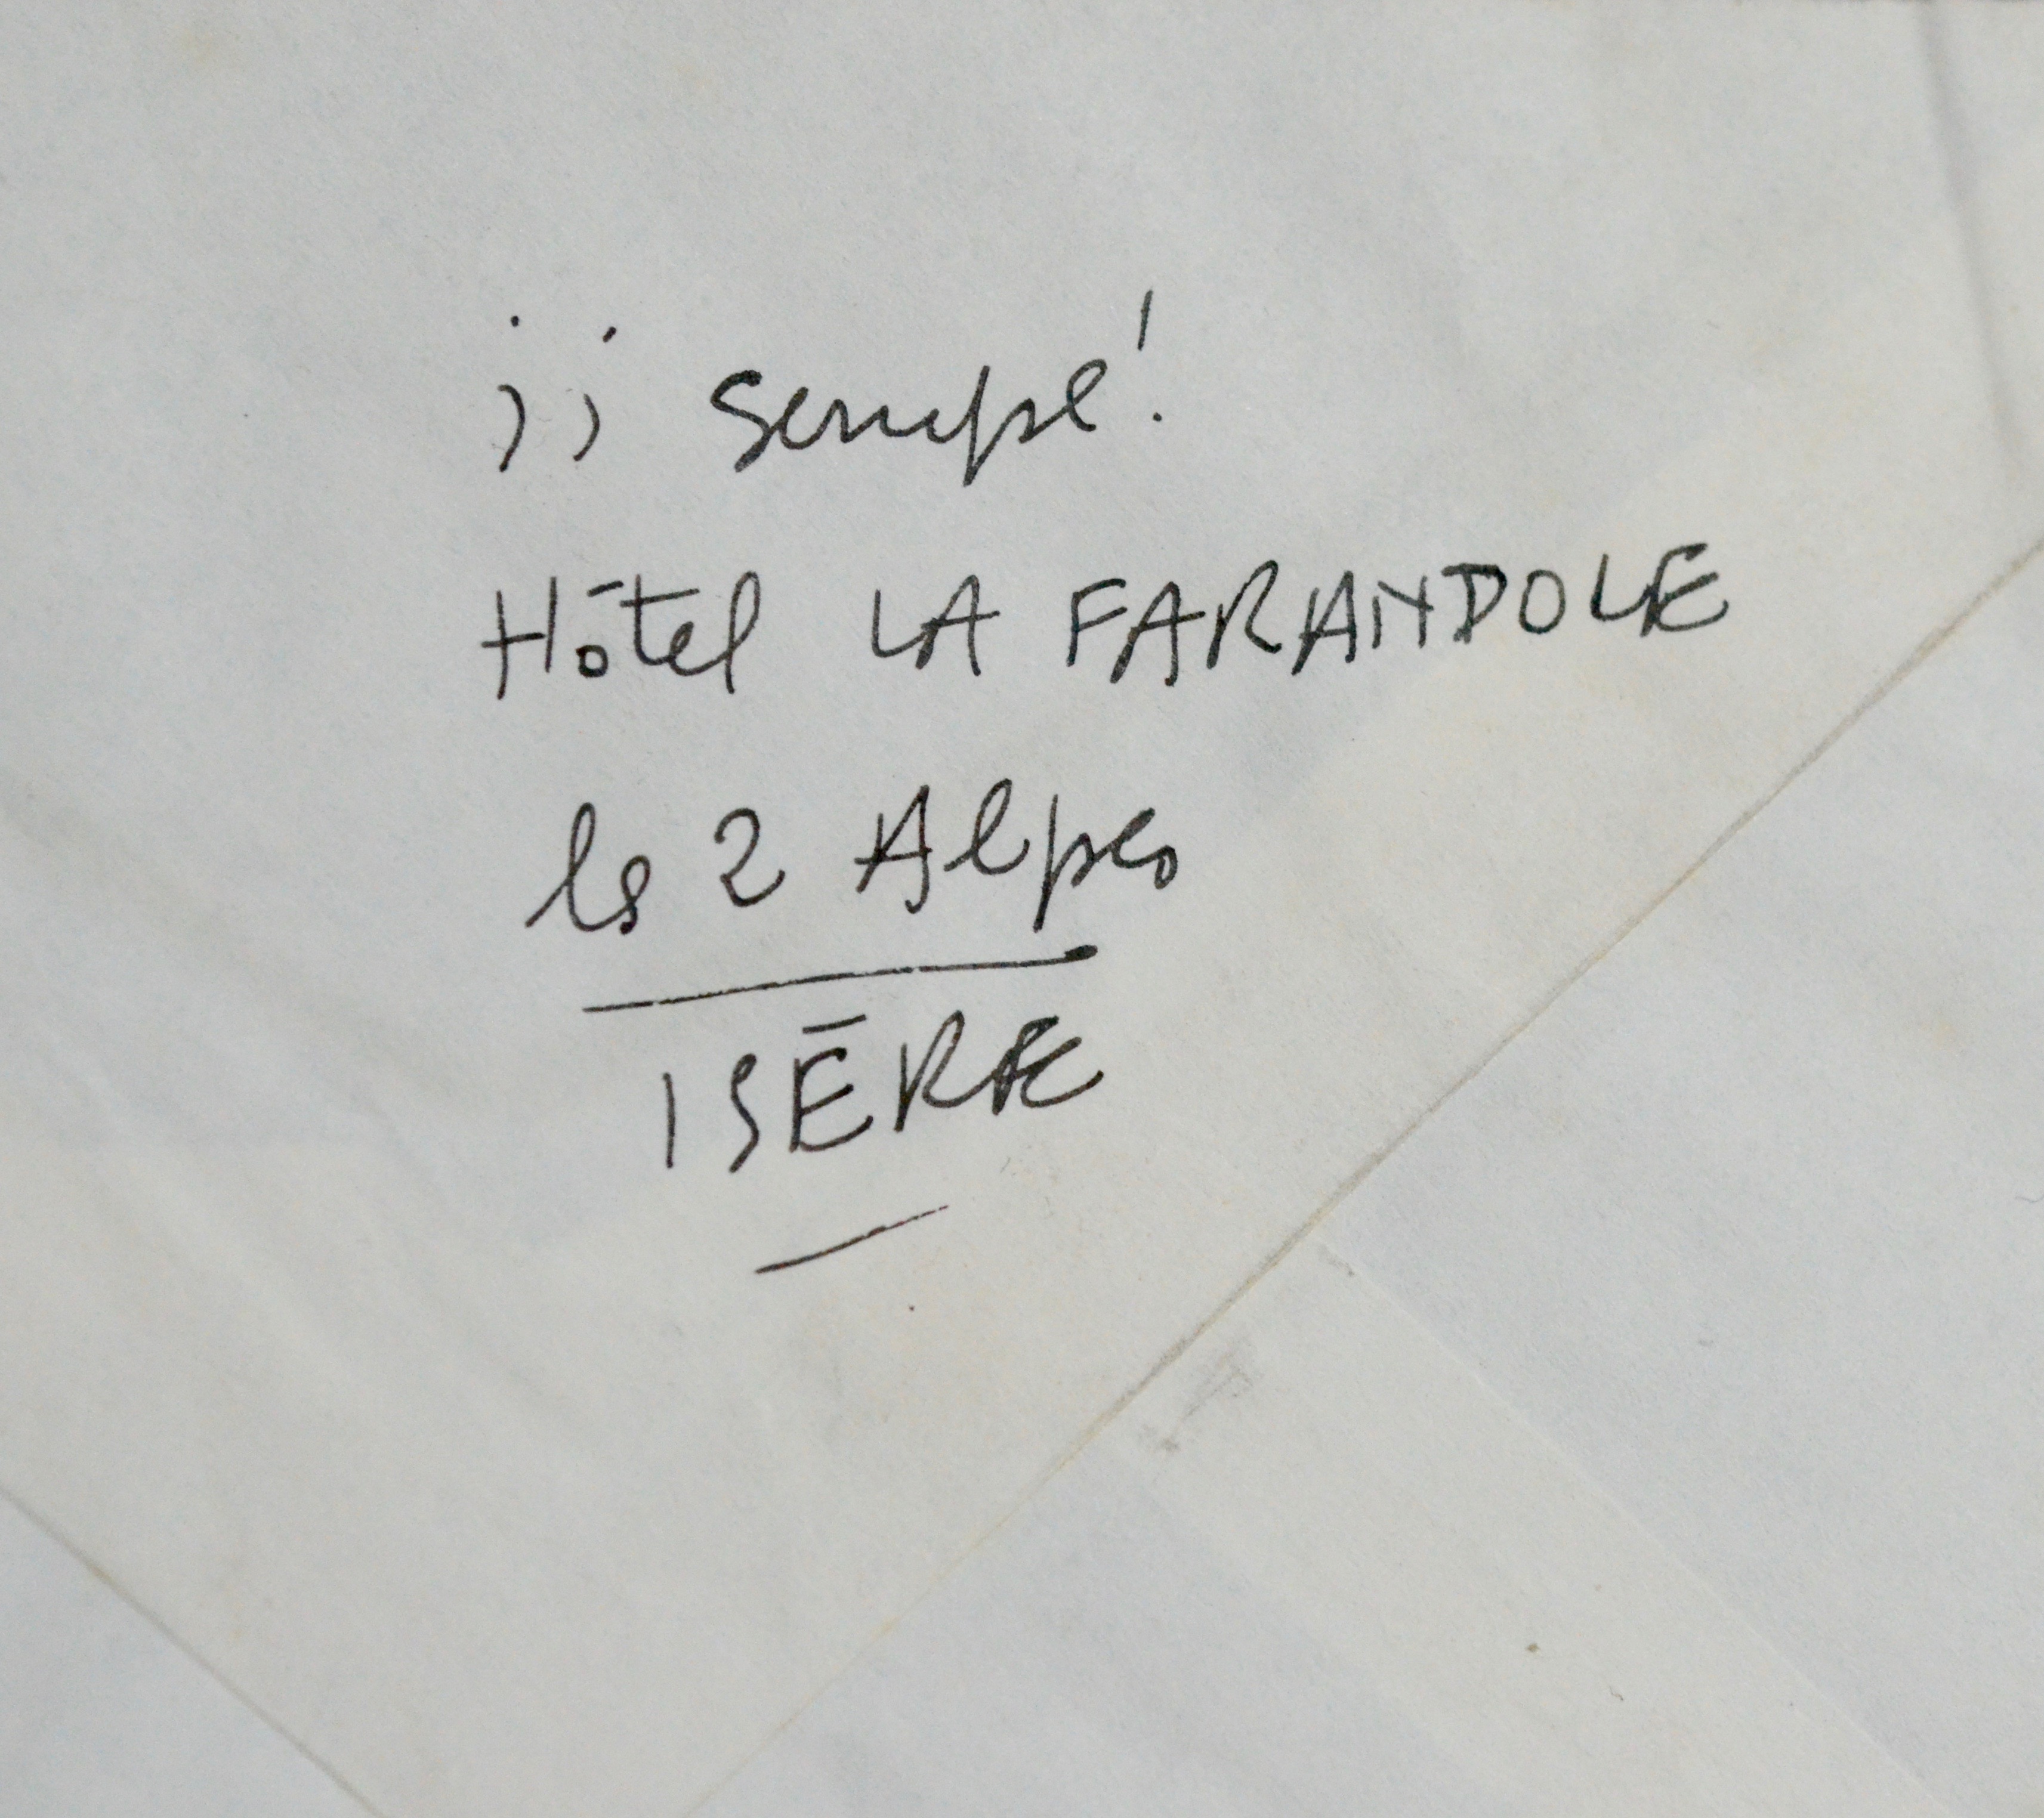 jj Sempé.
Hôtel LA FARANDOLE
les 2 Alpes
ISÈRE